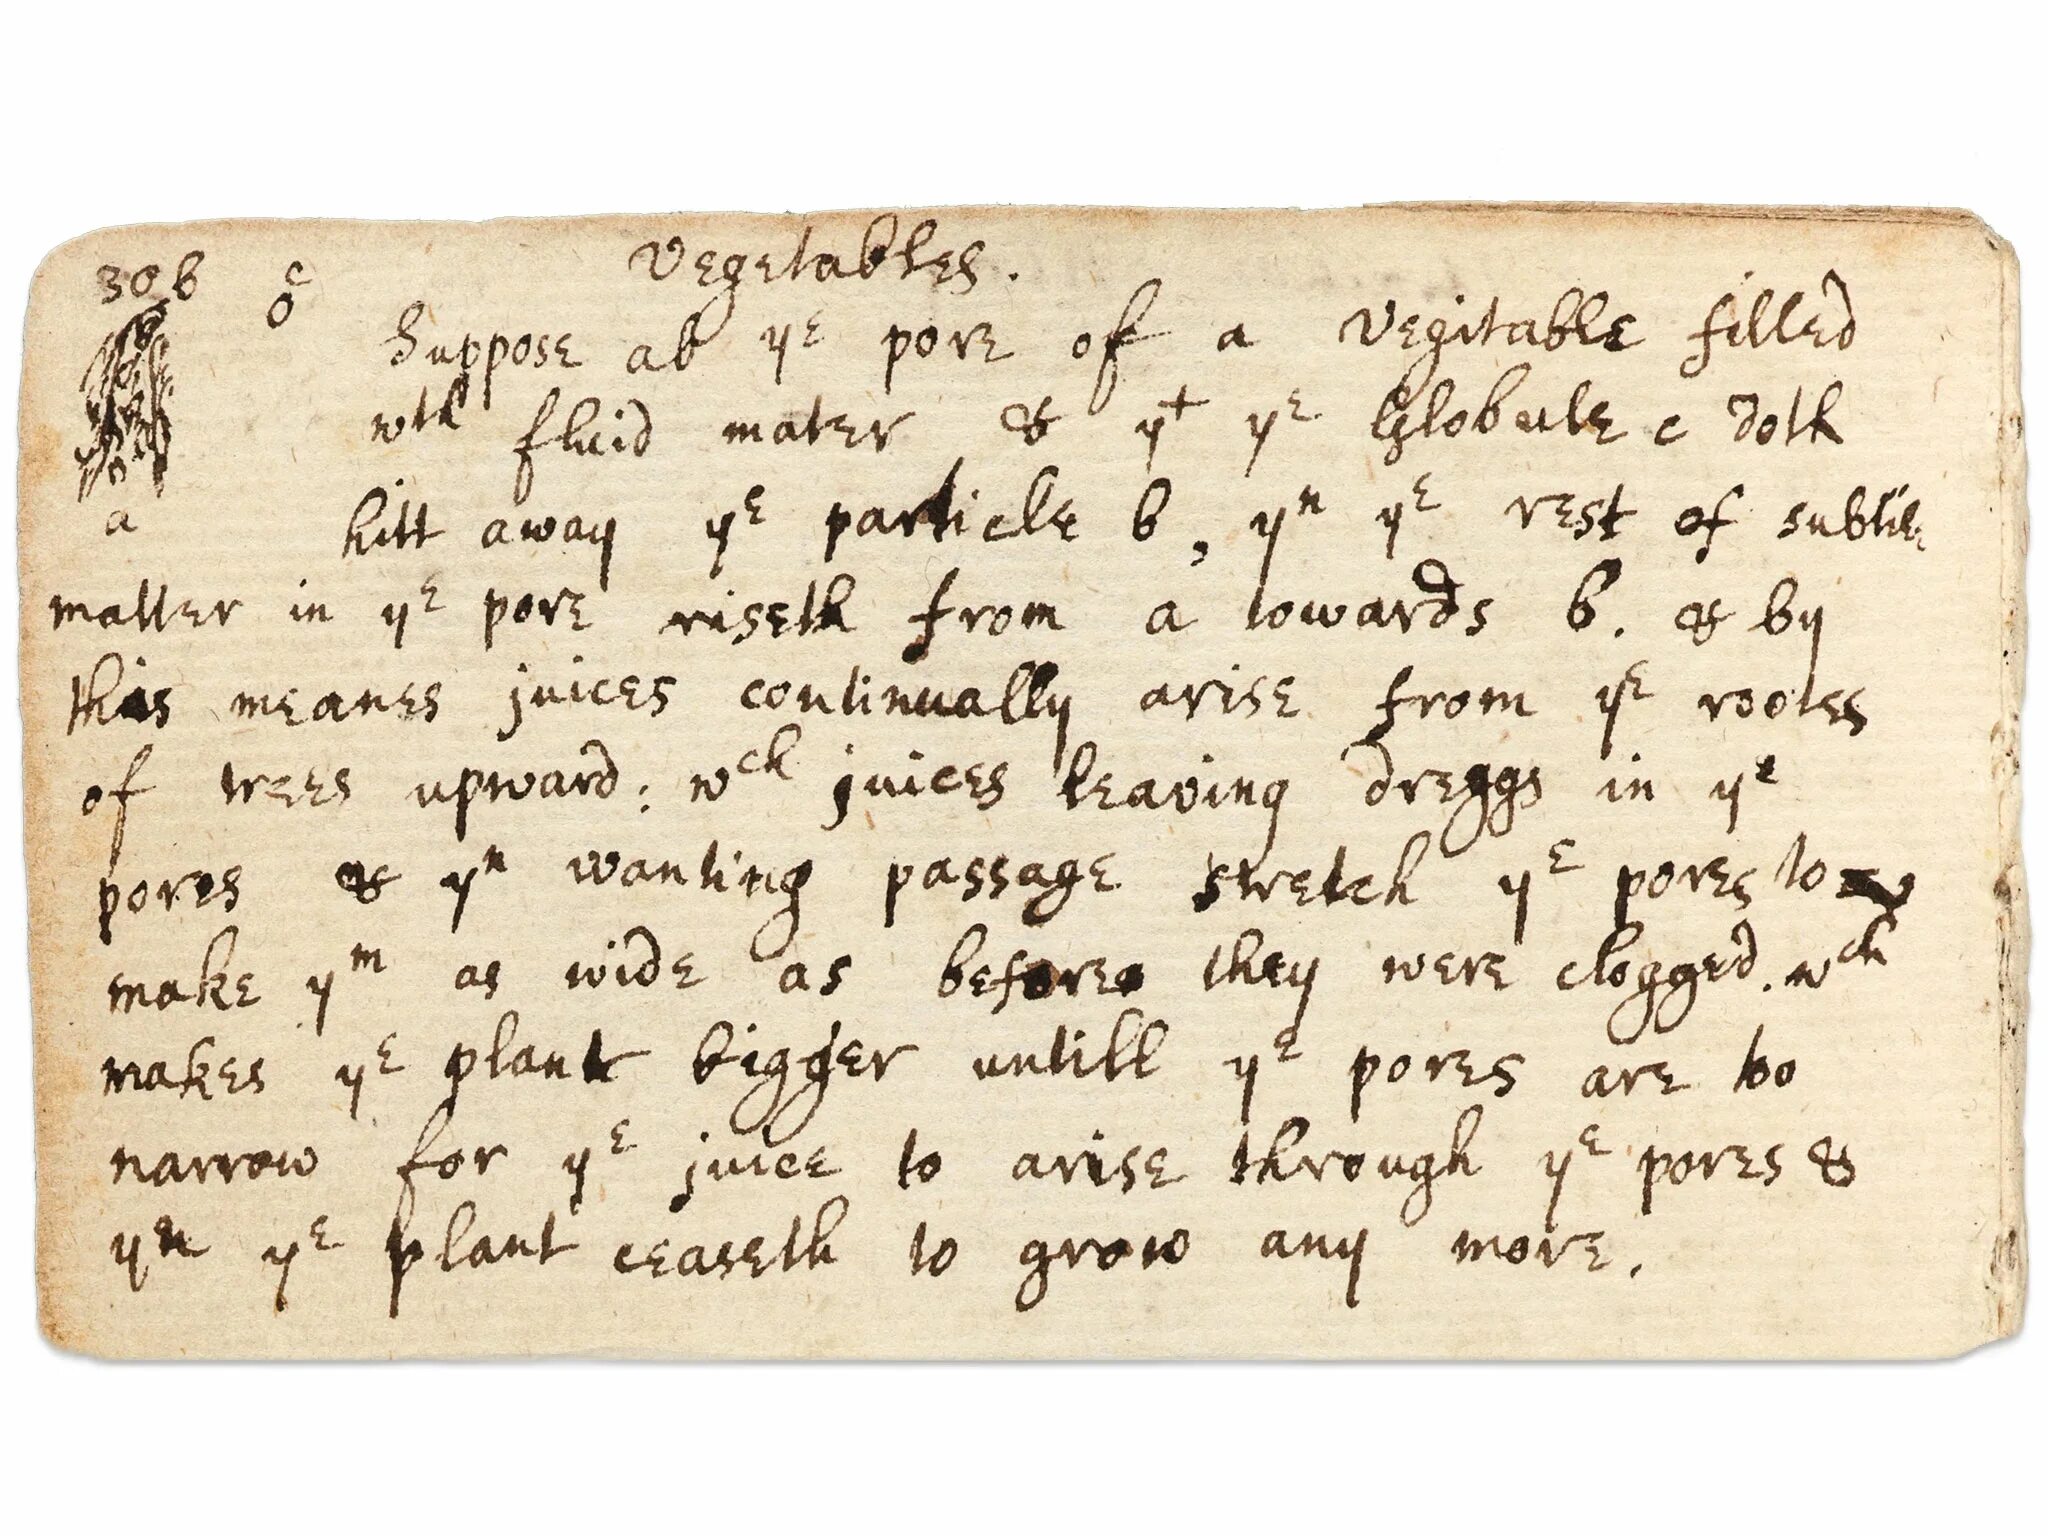 Vegetables.
30 b c
Suppose ab yᵉ pore of a Vegitable filled
wth fluid mater & y+ yᵉ Globule c doth
a
hitt away yᵉ particle b, yⁿ yᵉ rest of subtile
matter in yᵉ pore riseth from a towards b. & by
this meanes juices continually arise from yᵉ rootes
of trees upward: wᶜʰ juices leaving dreggs in yᵉ
pores & yⁿ wanting passage stretch yᵉ pores to
make yᵐ as wide as before they were clogged. wᶜʰ
makes yᵉ plant bigger untill yᵉ pores are too
narrow for yᵉ juice to arise through yᵉ pores &
yⁿ yᵉ plant ceaseth to grow any more.